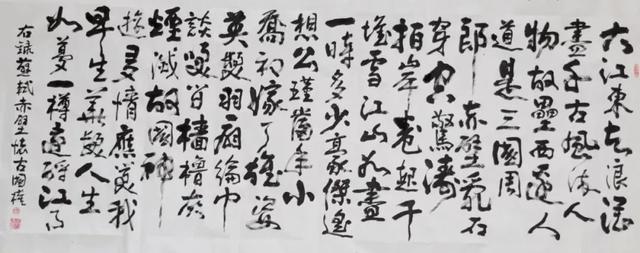 大江東去浪淘
盡千古風流人
物故壘西邊人
道是三國周
郎赤壁亂石
穿空驚濤
拍岸卷起千
堆雪江山如畫
一時多少豪傑遙
想公瑾當年小
喬初嫁了雄姿
英發羽扇綸巾
談笑間檣櫓灰
煙滅故國神
遊多情應笑我
早生華髮人生
如夢一樽還酹江月
右錄蘇軾赤壁懷古國